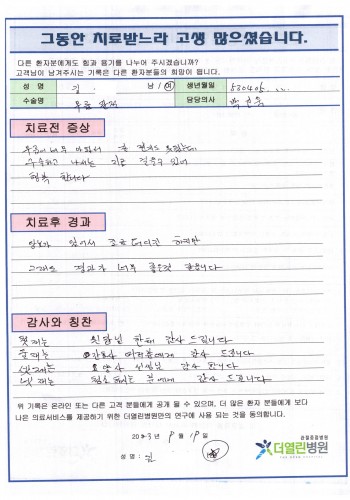 그동안 치료받느라 고생 많으셨습니다.
다른 환자분에게도 힘과 용기를 나누어 주시겠습니까?
고객님이 남겨주시는 기록은 다른 환자분들의 희망이 됩니다.
성 명 김 남 / 여 생년월일
수술명 무릎 관절 담당의사 박
치료전 증상
무릎이 너무 아파서 잘 걷지도 못했는데
수술하고 나서는 지금 걸을수 있어
행복 합니다
치료후 경과
있어서 조금 더디긴 하지만
그래도 결과가 너무 좋은것 같읍니다
감사와 칭찬
첫째는 원장님 한테 감사 드립니다
둘째는 간호사 여러분에게 감사 드립니다
셋째는 요양사 선생님 감사 합니다
넷째는 청소 하시는 분에게 감사 드립니다
위 기록은 온라인 또는 다른 고객 분들에게 공개 될 수 있으며, 더 많은 환자 분들에게 보다
나은 의료서비스를 제공하기 위한 더열린병원만의 연구에 사용 되는 것을 동의합니다.
2023 년 9 월 19 일
성 명 : 김
관절종합병원
더열린병원